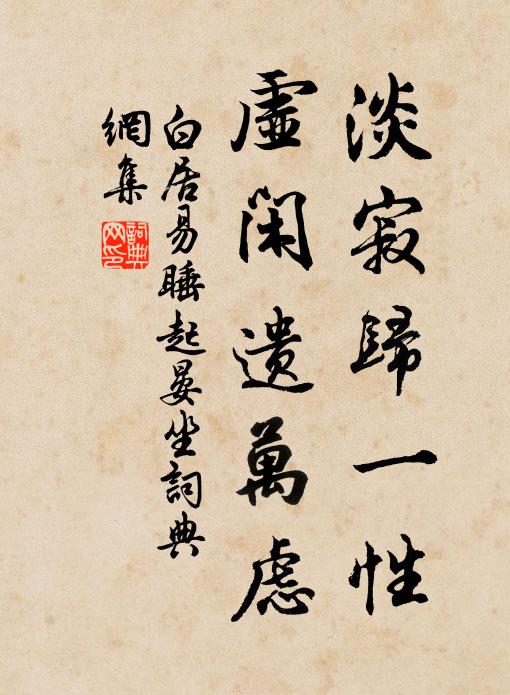 淡寂歸一性
虛閑遺萬慮
白居易睡起晏坐詞典
網集
詞典
网印